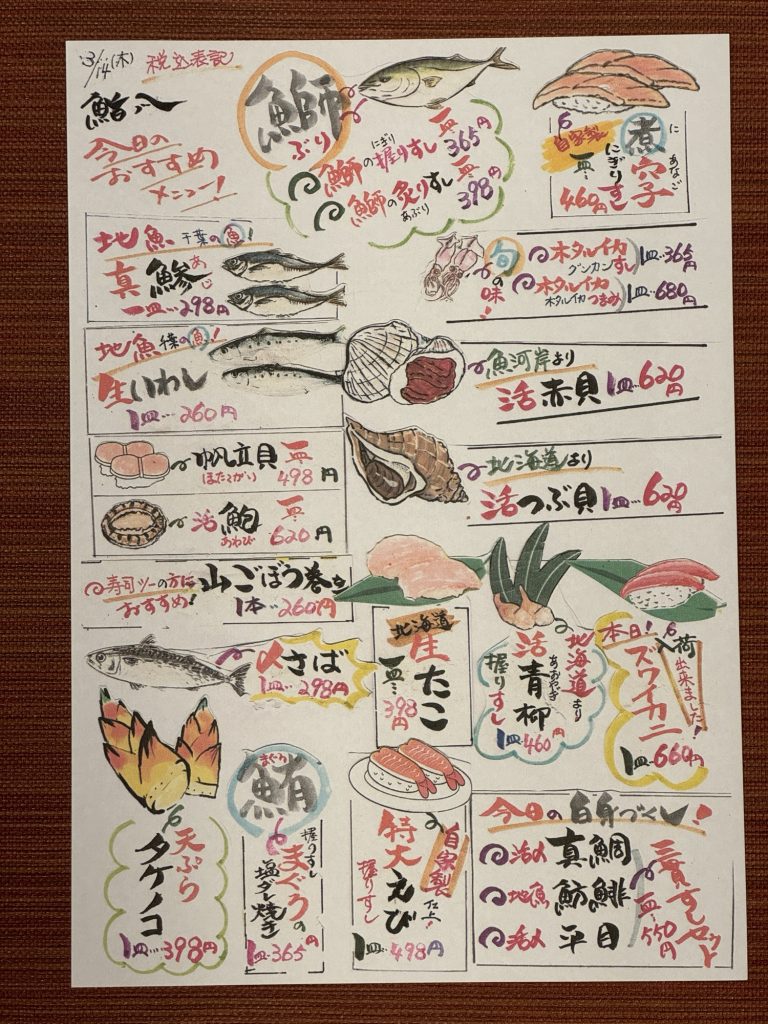 3/14(木) 税込表記
鮨
今日の
おすすめ
メニュー!
鰤
ぶり
鰤の握りすし 一皿 365円
にぎり
鰤の炙りすし 一皿 398円
あぶり
自家製
煮穴子
に あなご
にぎりすし
一皿 460円
地魚 千葉の魚!
真鯵
あじ
一皿…298円
旬の味!
ホタルイカ
グンカンすし 1皿…365円
ホタルイカ
ホタルイカつまみ 1皿…680円
地魚 千葉の魚!
生いわし
1皿…260円
魚河岸より
活赤貝 1皿…620円
帆立貝 一皿 498円
ほたてがい
活鮑 一皿 620円
あわび
北海道より
活つぶ貝 1皿…620円
寿司ツーの方に
おすすめ!
山ごぼう巻き
1本…260円
〆さば
1皿…298円
北海道
生たこ
一皿…398円
北海道より
活青柳
あおやぎ
握りすし
1皿…460円
本日!
入荷出来ました!
ズワイカニ
1皿…660円
天ぷら
タケノコ
1皿…398円
まぐろ
鮪
握りすし
まぐろの
塩ダレ焼き
1皿…365円
自家製仕上!
特大えび
握りすし
1皿…498円
今日の白身づくし!
活〆 真鯛
地魚 魴鯡
活〆 平目
三貫すしセット
一皿…550円